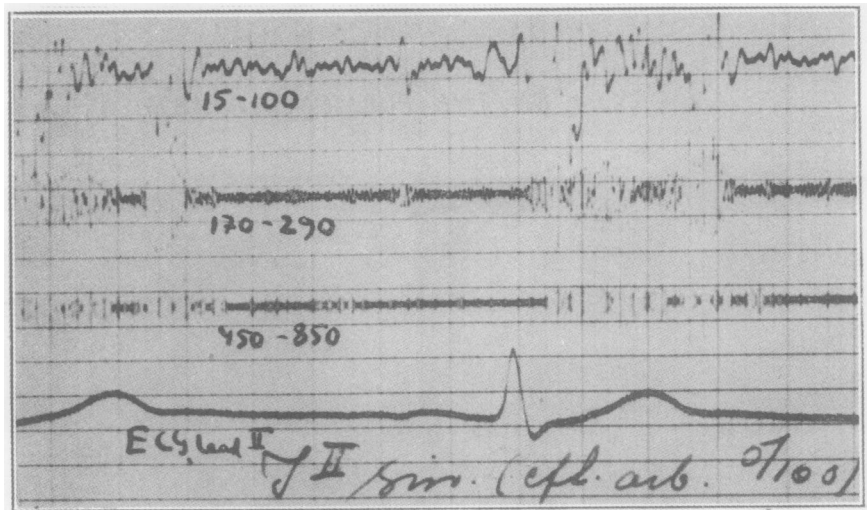 15-100
170-290
450-850
ECG, Lead II
II sin. (efl. arb. 0/100)